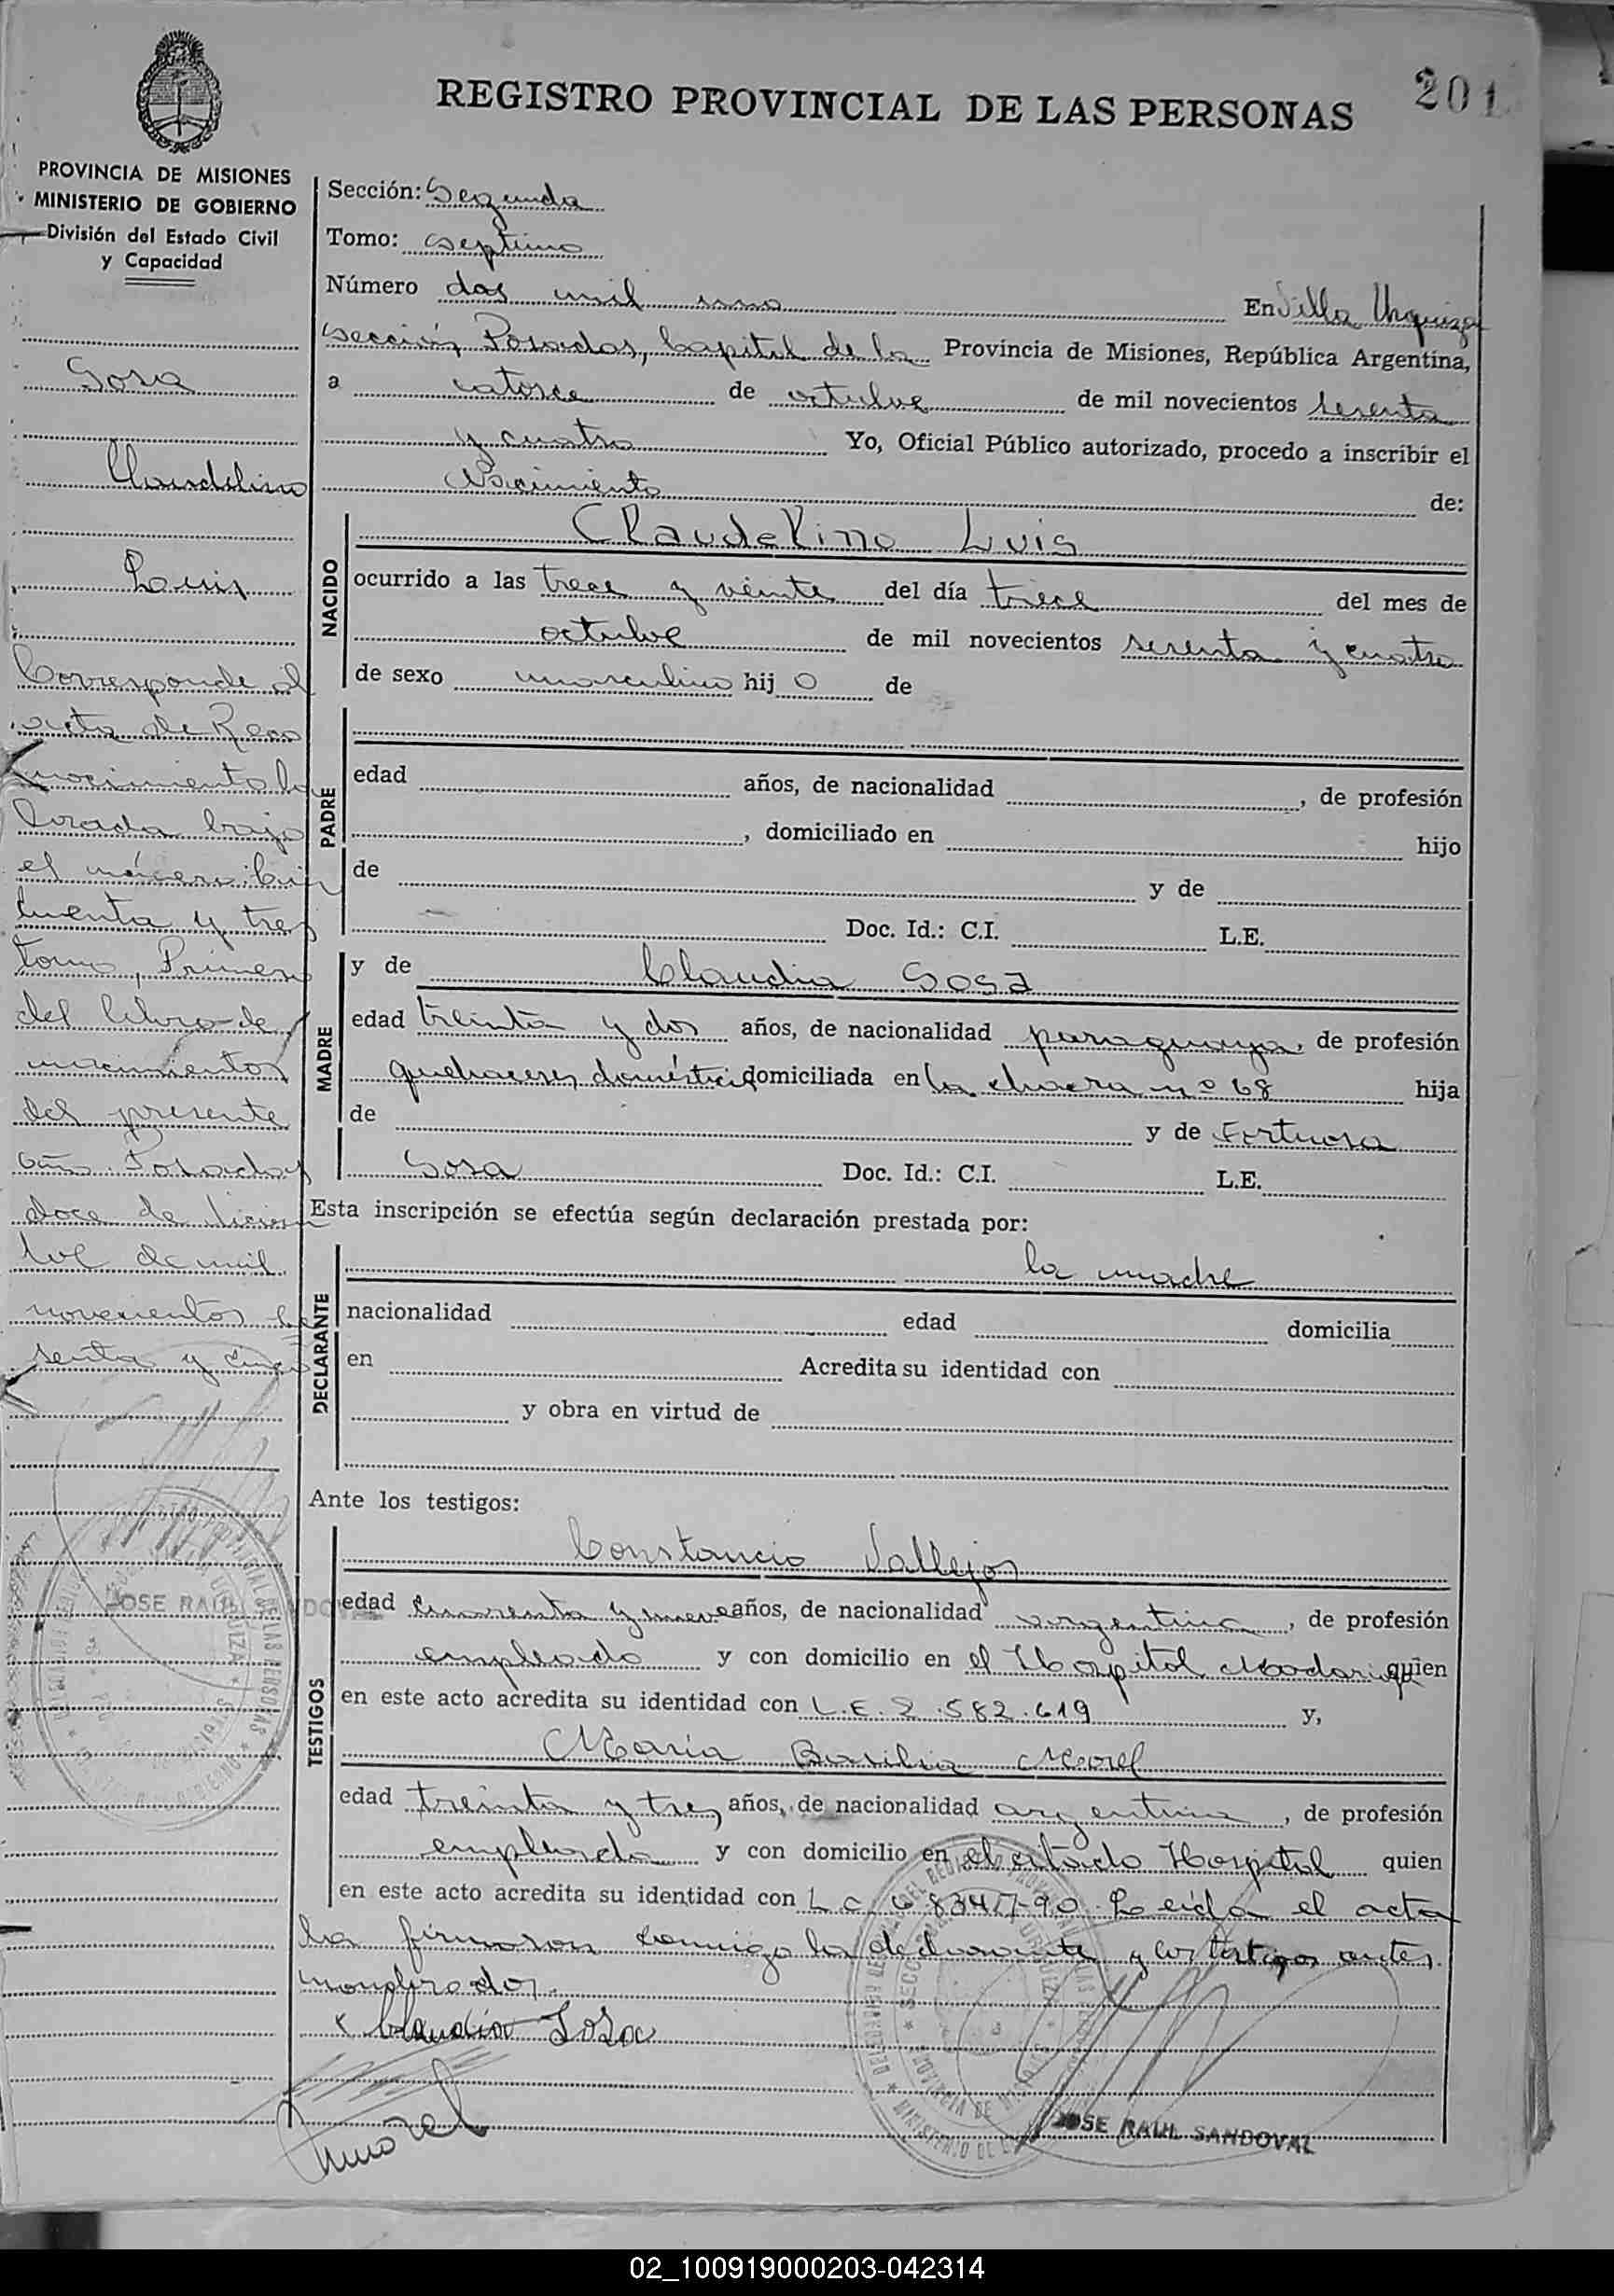 REGISTRO PROVINCIAL DE LAS PERSONAS
201
PROVINCIA DE MISIONES
MINISTERIO DE GOBIERNO
División del Estado Civil
y Capacidad
Sosa
Claudelino
Luis
Corresponde al
acta de Reco
nocimiento la
brada bajo
el número: Cin
cuenta y tres
tomo, Primero
del libro de
nacimientos
del presente
año. Posadas
doce de
de mil
novecientos se
senta y cinco
JOSE RAUL SANDOVAL
Sección: Segunda
Tomo: septimo
Número dos mil uno En Villa Urquiza
sección Posadas, Capital de la Provincia de Misiones, República Argentina,
a catorce de octubre de mil novecientos sesenta
y cuatro Yo, Oficial Público autorizado, procedo a inscribir el
Nacimiento de:
NACIDO
Claudelino Luis
ocurrido a las trece y veinte del día trece del mes de
octubre de mil novecientos sesenta y cuatro
de sexo masculino hijo de
PADRE
edad años, de nacionalidad , de profesión
, domiciliado en hijo
de y de
Doc. Id.: C.I. L.E.
MADRE
y de Claudia Sosa
edad treinta y dos años, de nacionalidad paraguaya, de profesión
quehaceres domésticos domiciliada en la chacra nº 68 hija
de y de Fortunosa
Sosa Doc. Id.: C.I. L.E.
Esta inscripción se efectúa según declaración prestada por:
DECLARANTE
la madre
nacionalidad edad domicilia
en Acredita su identidad con
y obra en virtud de
Ante los testigos:
TESTIGOS
Constancio Vallejos
edad cuarenta y nueve años, de nacionalidad argentina, de profesión
empleado y con domicilio en el Hospital Madariaga quien
en este acto acredita su identidad con L.E. 2.582.619 y,
María Basilia Morel
edad treinta y tres años, de nacionalidad argentina, de profesión
empleada y con domicilio en el citado Hospital quien
en este acto acredita su identidad con L.C. 6834790. Leída el acta
la firmaron conmigo la declarante y los testigos antes
nombrados.
x Claudia Sosa
Morel
JOSE RAUL SANDOVAL
02_100919000203-042314